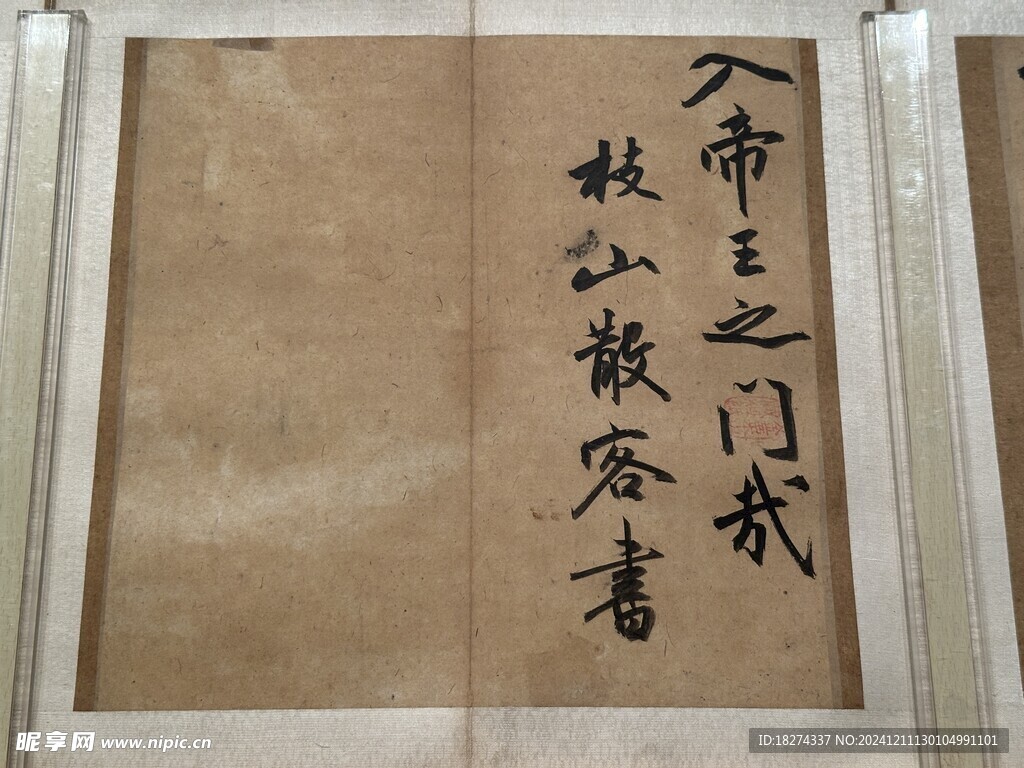 入帝王之门哉
枝山散客書
昵享网 www.nipic.cn
ID:18274337 NO:20241211130104991101